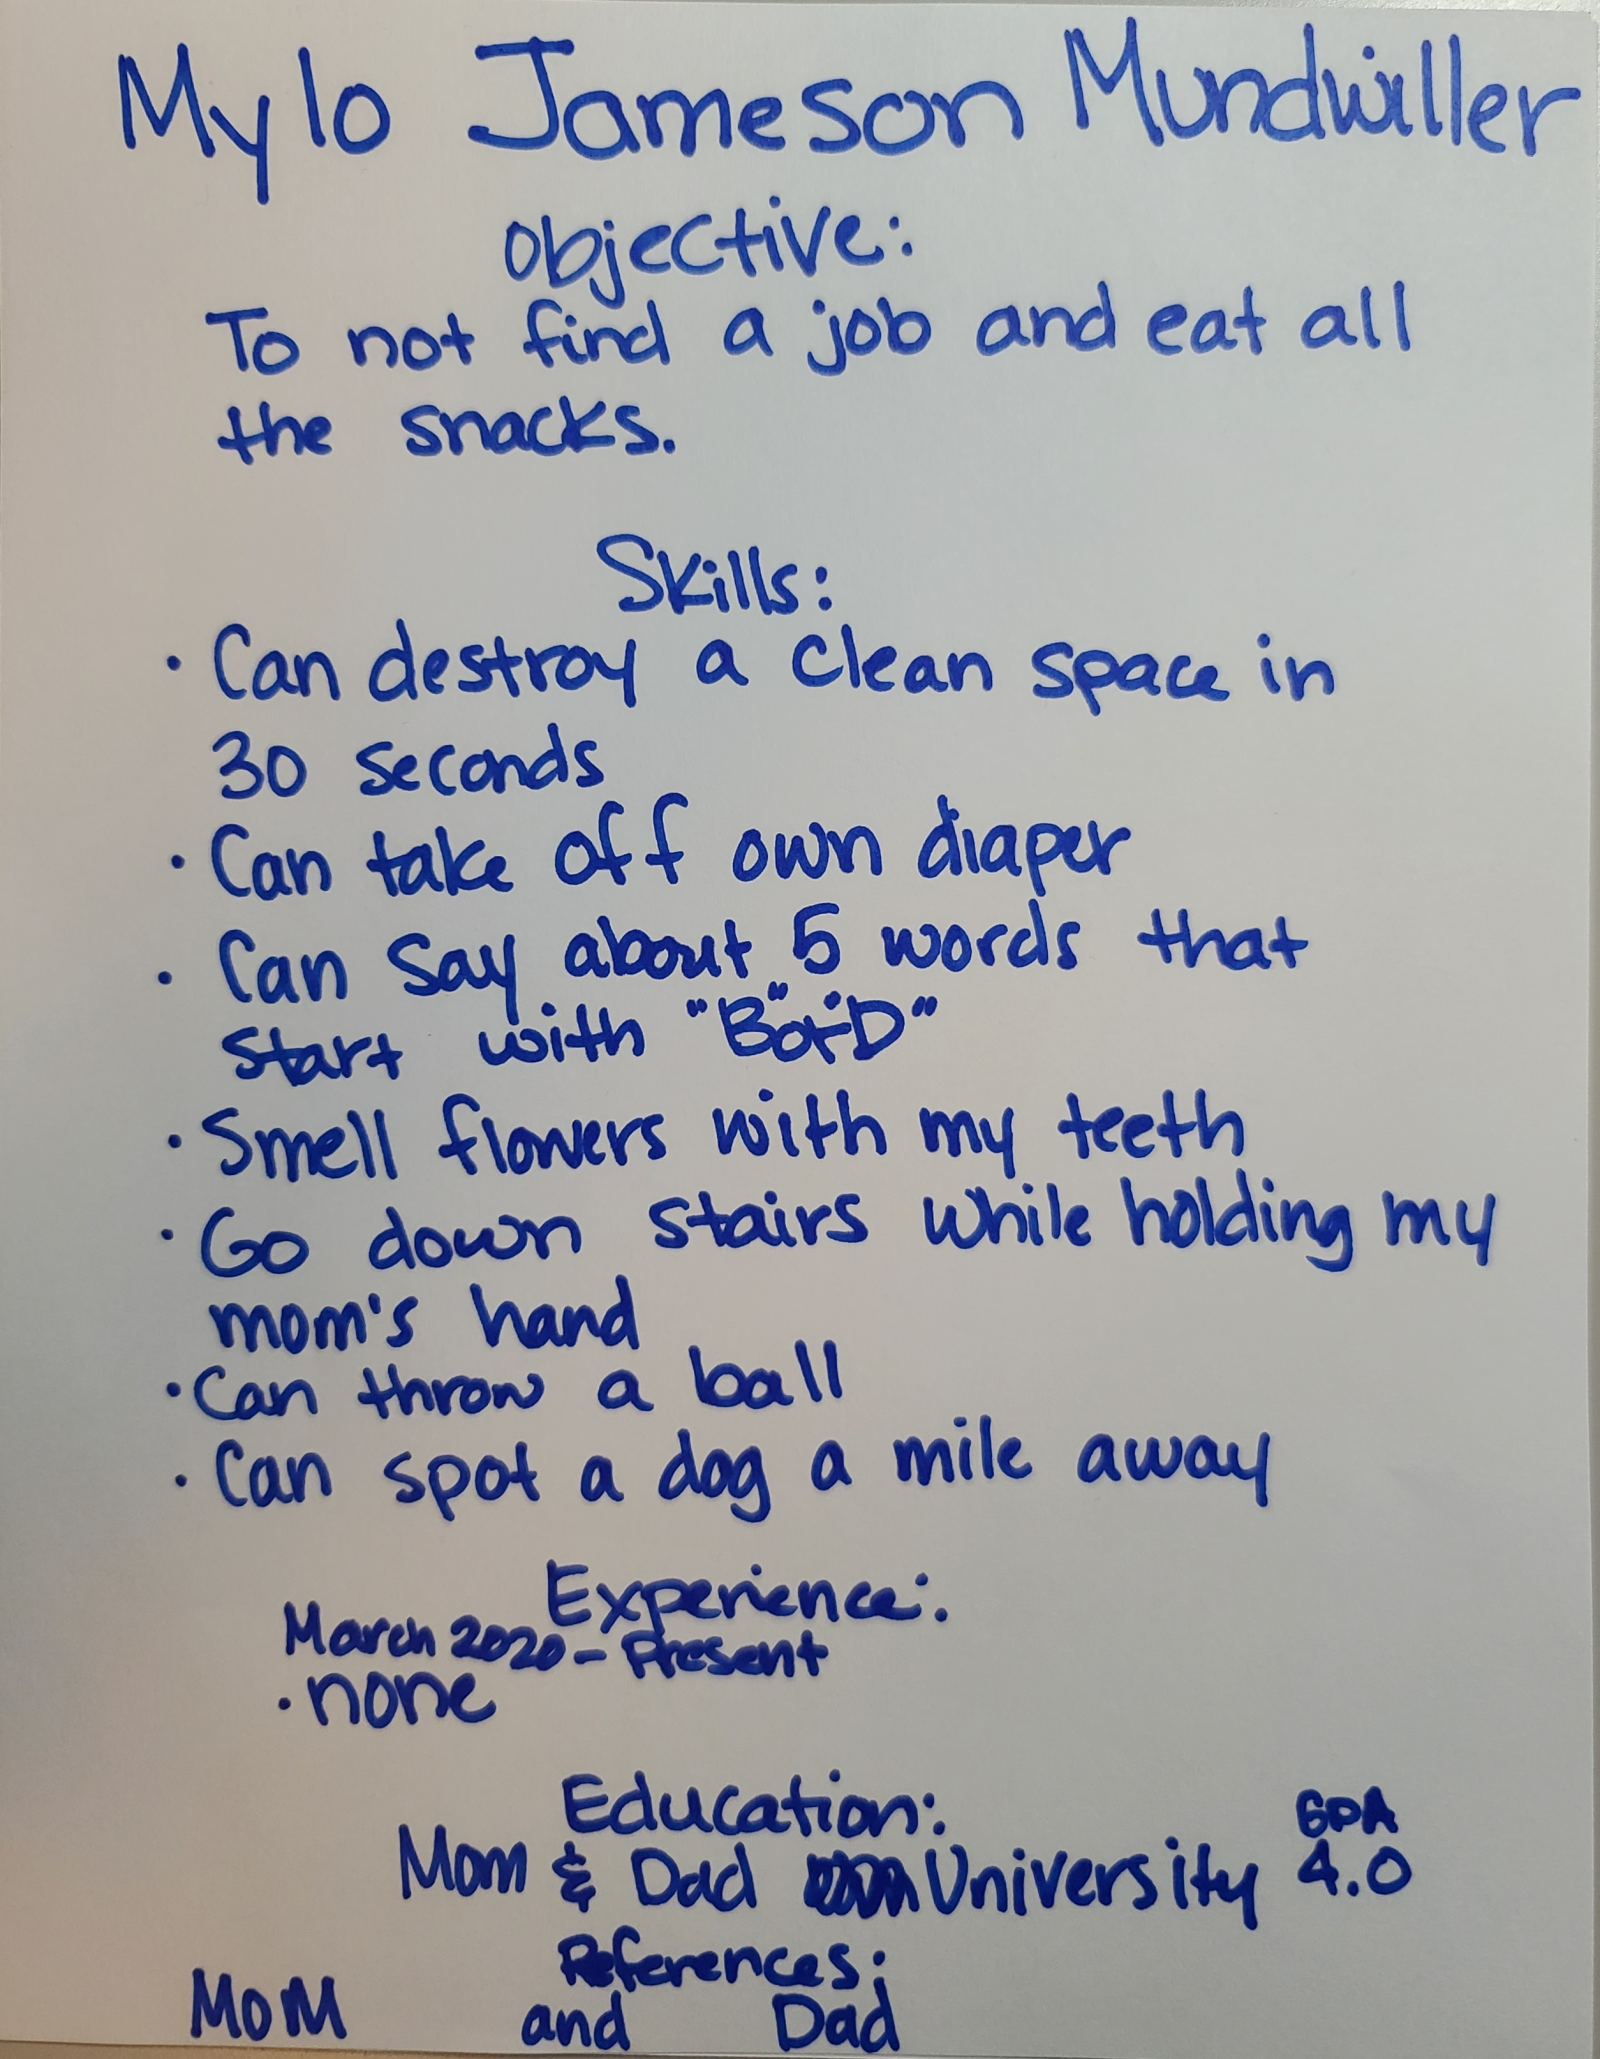 Mylo Jameson Mundwiller
Objective:
To not find a job and eat all
the snacks.
Skills:
· Can destroy a clean space in
30 seconds
· Can take off own diaper
· Can say about 5 words that
start with "B" or "D"
· Smell flowers with my teeth
· Go down stairs while holding my
mom's hand
· Can throw a ball
· Can spot a dog a mile away
Experience:
March 2020 - Present
· none
Education:
GPA
Mom & Dad University 4.0
References:
MOM and Dad